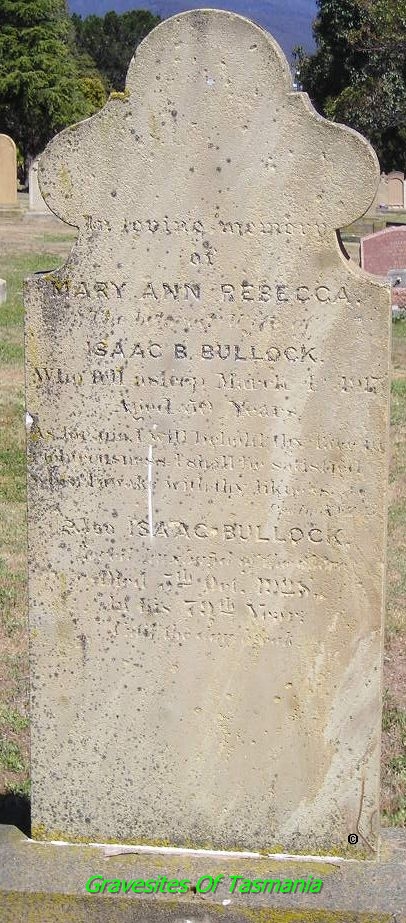 In loving memory
of
MARY ANN REBECCA.
The beloved Wife of
ISAAC B. BULLOCK.
Who fell asleep March 1917
Aged Years
As for me, I will behold thy face in
righteousness: I shall be satisfied
when I awake with thy likeness.
Also ISAAC BULLOCK.
of the above
Died 5th Oct.
in his 79th Year
Until the day break
©
Gravesites Of Tasmania